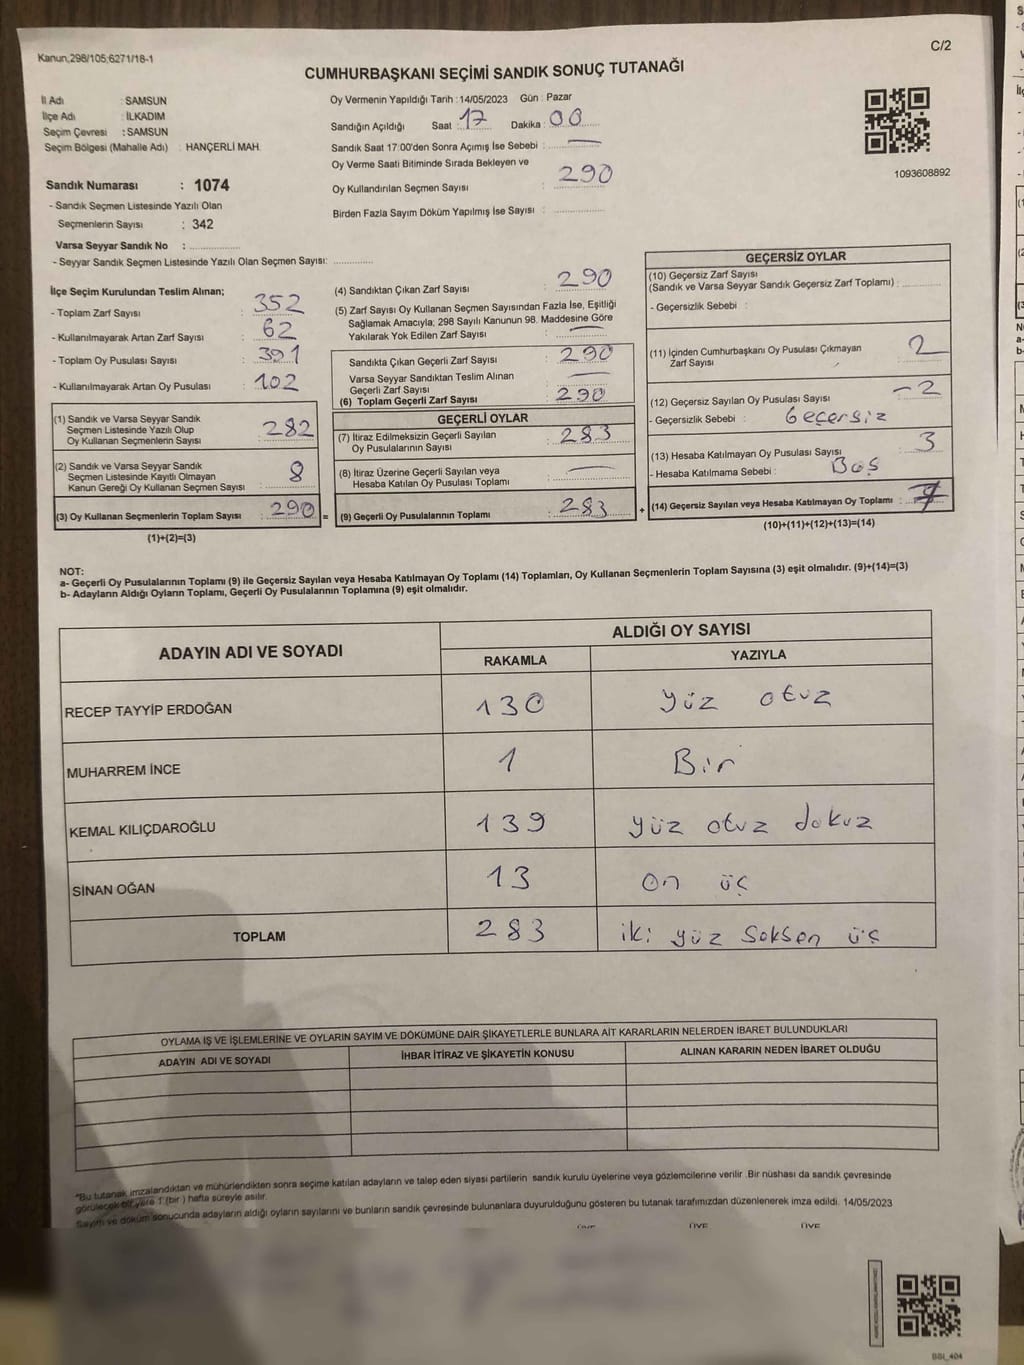 Kanun,298/105;6271/18-1
C/2
CUMHURBAŞKANI SEÇİMİ SANDIK SONUÇ TUTANAĞI
İl Adı : SAMSUN
İlçe Adı : İLKADIM
Seçim Çevresi : SAMSUN
Seçim Bölgesi (Mahalle Adı) : HANÇERLİ MAH.
Sandık Numarası : 1074
- Sandık Seçmen Listesinde Yazılı Olan
Seçmenlerin Sayısı : 342
Varsa Seyyar Sandık No :
- Seyyar Sandık Seçmen Listesinde Yazılı Olan Seçmen Sayısı:
Oy Vermenin Yapıldığı Tarih : 14/05/2023 Gün : Pazar
Sandığın Açıldığı Saat : 17 Dakika : 00
Sandık Saat 17:00'den Sonra Açımış İse Sebebi : —
Oy Verme Saati Bitiminde Sırada Bekleyen ve
Oy Kullandırılan Seçmen Sayısı : 290
Birden Fazla Sayım Döküm Yapılmış İse Sayısı :
1093608892
İlçe Seçim Kurulundan Teslim Alınan;
- Toplam Zarf Sayısı : 352
- Kullanılmayarak Artan Zarf Sayısı : 62
- Toplam Oy Pusulası Sayısı : 391
- Kullanılmayarak Artan Oy Pusulası : 102
(1) Sandık ve Varsa Seyyar Sandık
Seçmen Listesinde Yazılı Olup
Oy Kullanan Seçmenlerin Sayısı : 282
(2) Sandık ve Varsa Seyyar Sandık
Seçmen Listesinde Kayıtlı Olmayan
Kanun Gereği Oy Kullanan Seçmen Sayısı : 8
(3) Oy Kullanan Seçmenlerin Toplam Sayısı : 290 =
(1)+(2)=(3)
(4) Sandıktan Çıkan Zarf Sayısı : 290
(5) Zarf Sayısı Oy Kullanan Seçmen Sayısından Fazla İse, Eşitliği
Sağlamak Amacıyla; 298 Sayılı Kanunun 98. Maddesine Göre
Yakılarak Yok Edilen Zarf Sayısı : —
Sandıkta Çıkan Geçerli Zarf Sayısı : 290
Varsa Seyyar Sandıktan Teslim Alınan
Geçerli Zarf Sayısı : —
(6) Toplam Geçerli Zarf Sayısı : 290
GEÇERLİ OYLAR
(7) İtiraz Edilmeksizin Geçerli Sayılan
Oy Pusulalarının Sayısı : 283
(8) İtiraz Üzerine Geçerli Sayılan veya
Hesaba Katılan Oy Pusulası Toplamı : —
(9) Geçerli Oy Pusulalarının Toplamı : 283 +
GEÇERSİZ OYLAR
(10) Geçersiz Zarf Sayısı
(Sandık ve Varsa Seyyar Sandık Geçersiz Zarf Toplamı) :
- Geçersizlik Sebebi :
(11) İçinden Cumhurbaşkanı Oy Pusulası Çıkmayan
Zarf Sayısı : 2
(12) Geçersiz Sayılan Oy Pusulası Sayısı : - 2
- Geçersizlik Sebebi : Geçersiz
(13) Hesaba Katılmayan Oy Pusulası Sayısı : 3
- Hesaba Katılmama Sebebi : Boş
(14) Geçersiz Sayılan veya Hesaba Katılmayan Oy Toplamı : 7
(10)+(11)+(12)+(13)=(14)
NOT:
a- Geçerli Oy Pusulalarının Toplamı (9) ile Geçersiz Sayılan veya Hesaba Katılmayan Oy Toplamı (14) Toplamları, Oy Kullanan Seçmenlerin Toplam Sayısına (3) eşit olmalıdır. (9)+(14)=(3)
b- Adayların Aldığı Oyların Toplamı, Geçerli Oy Pusulalarının Toplamına (9) eşit olmalıdır.
ADAYIN ADI VE SOYADI
ALDIĞI OY SAYISI
RAKAMLA YAZIYLA
RECEP TAYYİP ERDOĞAN 130 yüz otuz
MUHARREM İNCE 1 Bir
KEMAL KILIÇDAROĞLU 139 yüz otuz dokuz
SİNAN OĞAN 13 on üç
TOPLAM 283 iki yüz seksen üç
OYLAMA İŞ VE İŞLEMLERİNE VE OYLARIN SAYIM VE DÖKÜMÜNE DAİR ŞİKAYETLERLE BUNLARA AİT KARARLARIN NELERDEN İBARET BULUNDUKLARI
ADAYIN ADI VE SOYADI İHBAR İTİRAZ VE ŞİKAYETİN KONUSU ALINAN KARARIN NEDEN İBARET OLDUĞU
*Bu tutanak imzalandıktan ve mühürlendikten sonra seçime katılan adayların ve talep eden siyasi partilerin sandık kurulu üyelerine veya gözlemcilerine verilir .Bir nüshası da sandık çevresinde
görülecek bir yere 1 (bir ) hafta süreyle asılır.
Sayım ve döküm sonucunda adayların aldığı oyların sayılarını ve bunların sandık çevresinde bulunanlara duyurulduğunu gösteren bu tutanak tarafımızdan düzenlenerek imza edildi. 14/05/2023
ÜYE ÜYE
BBI_404